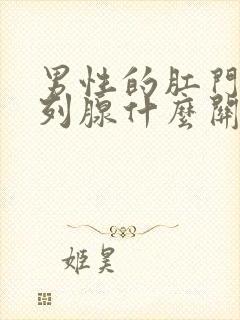 男性的肛門
列腺什麼關
姬昊